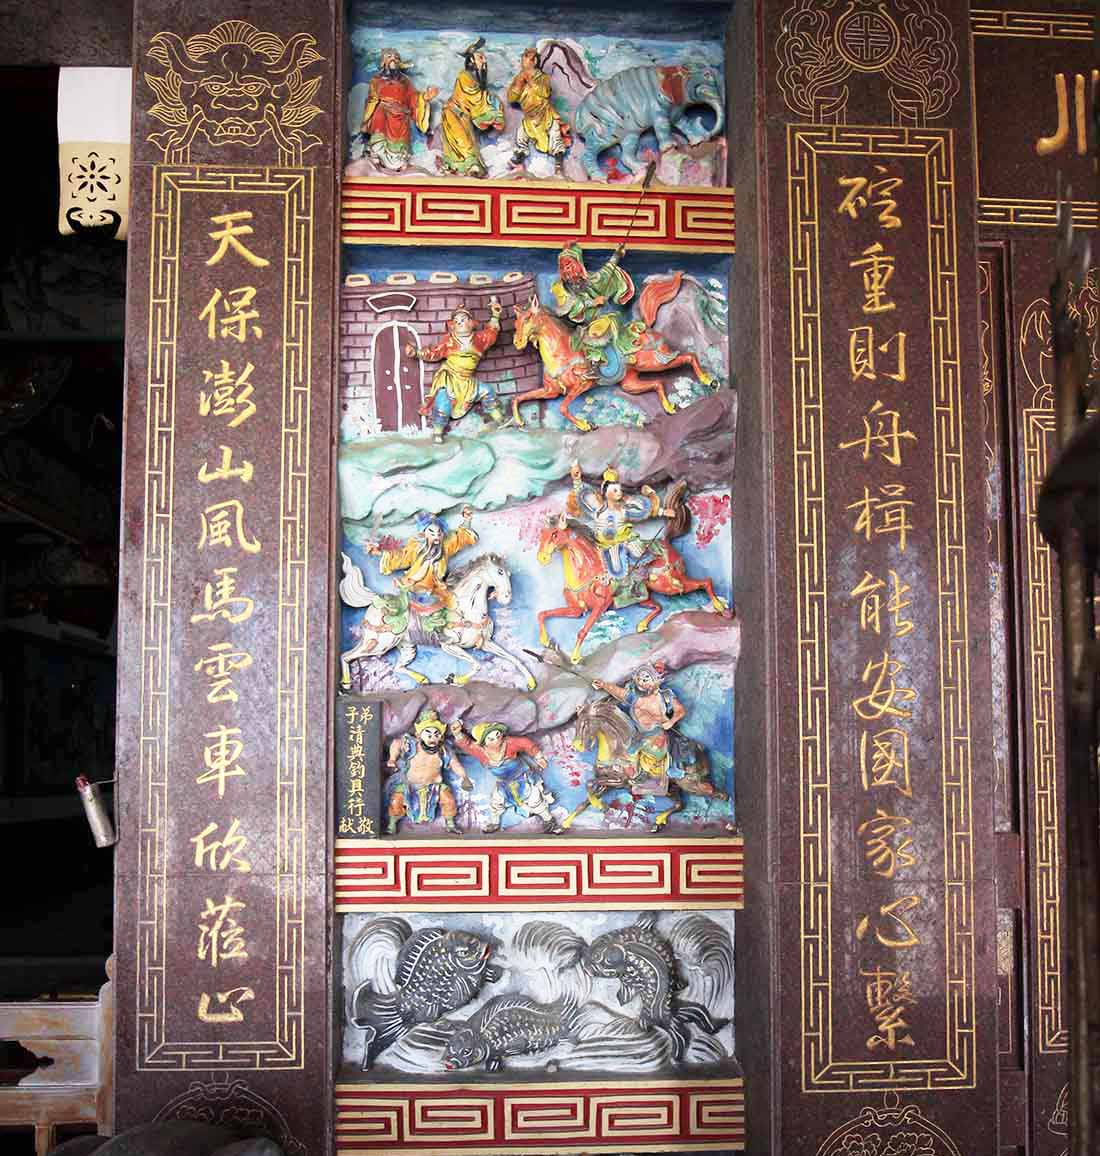 碇重則舟楫能安國家心繫
弟子清典釣具行敬献
天保澎山風馬雲車欣蒞止